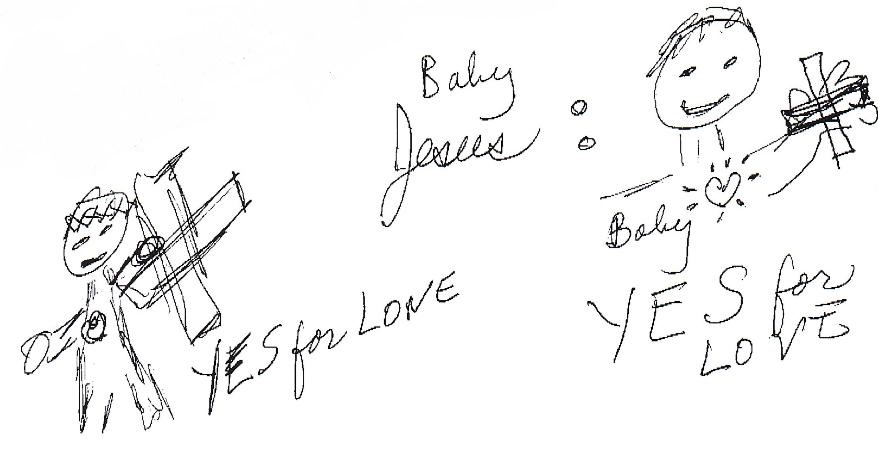 Baby
Jesus :
Baby
YES for
LOVE
YES for LOVE